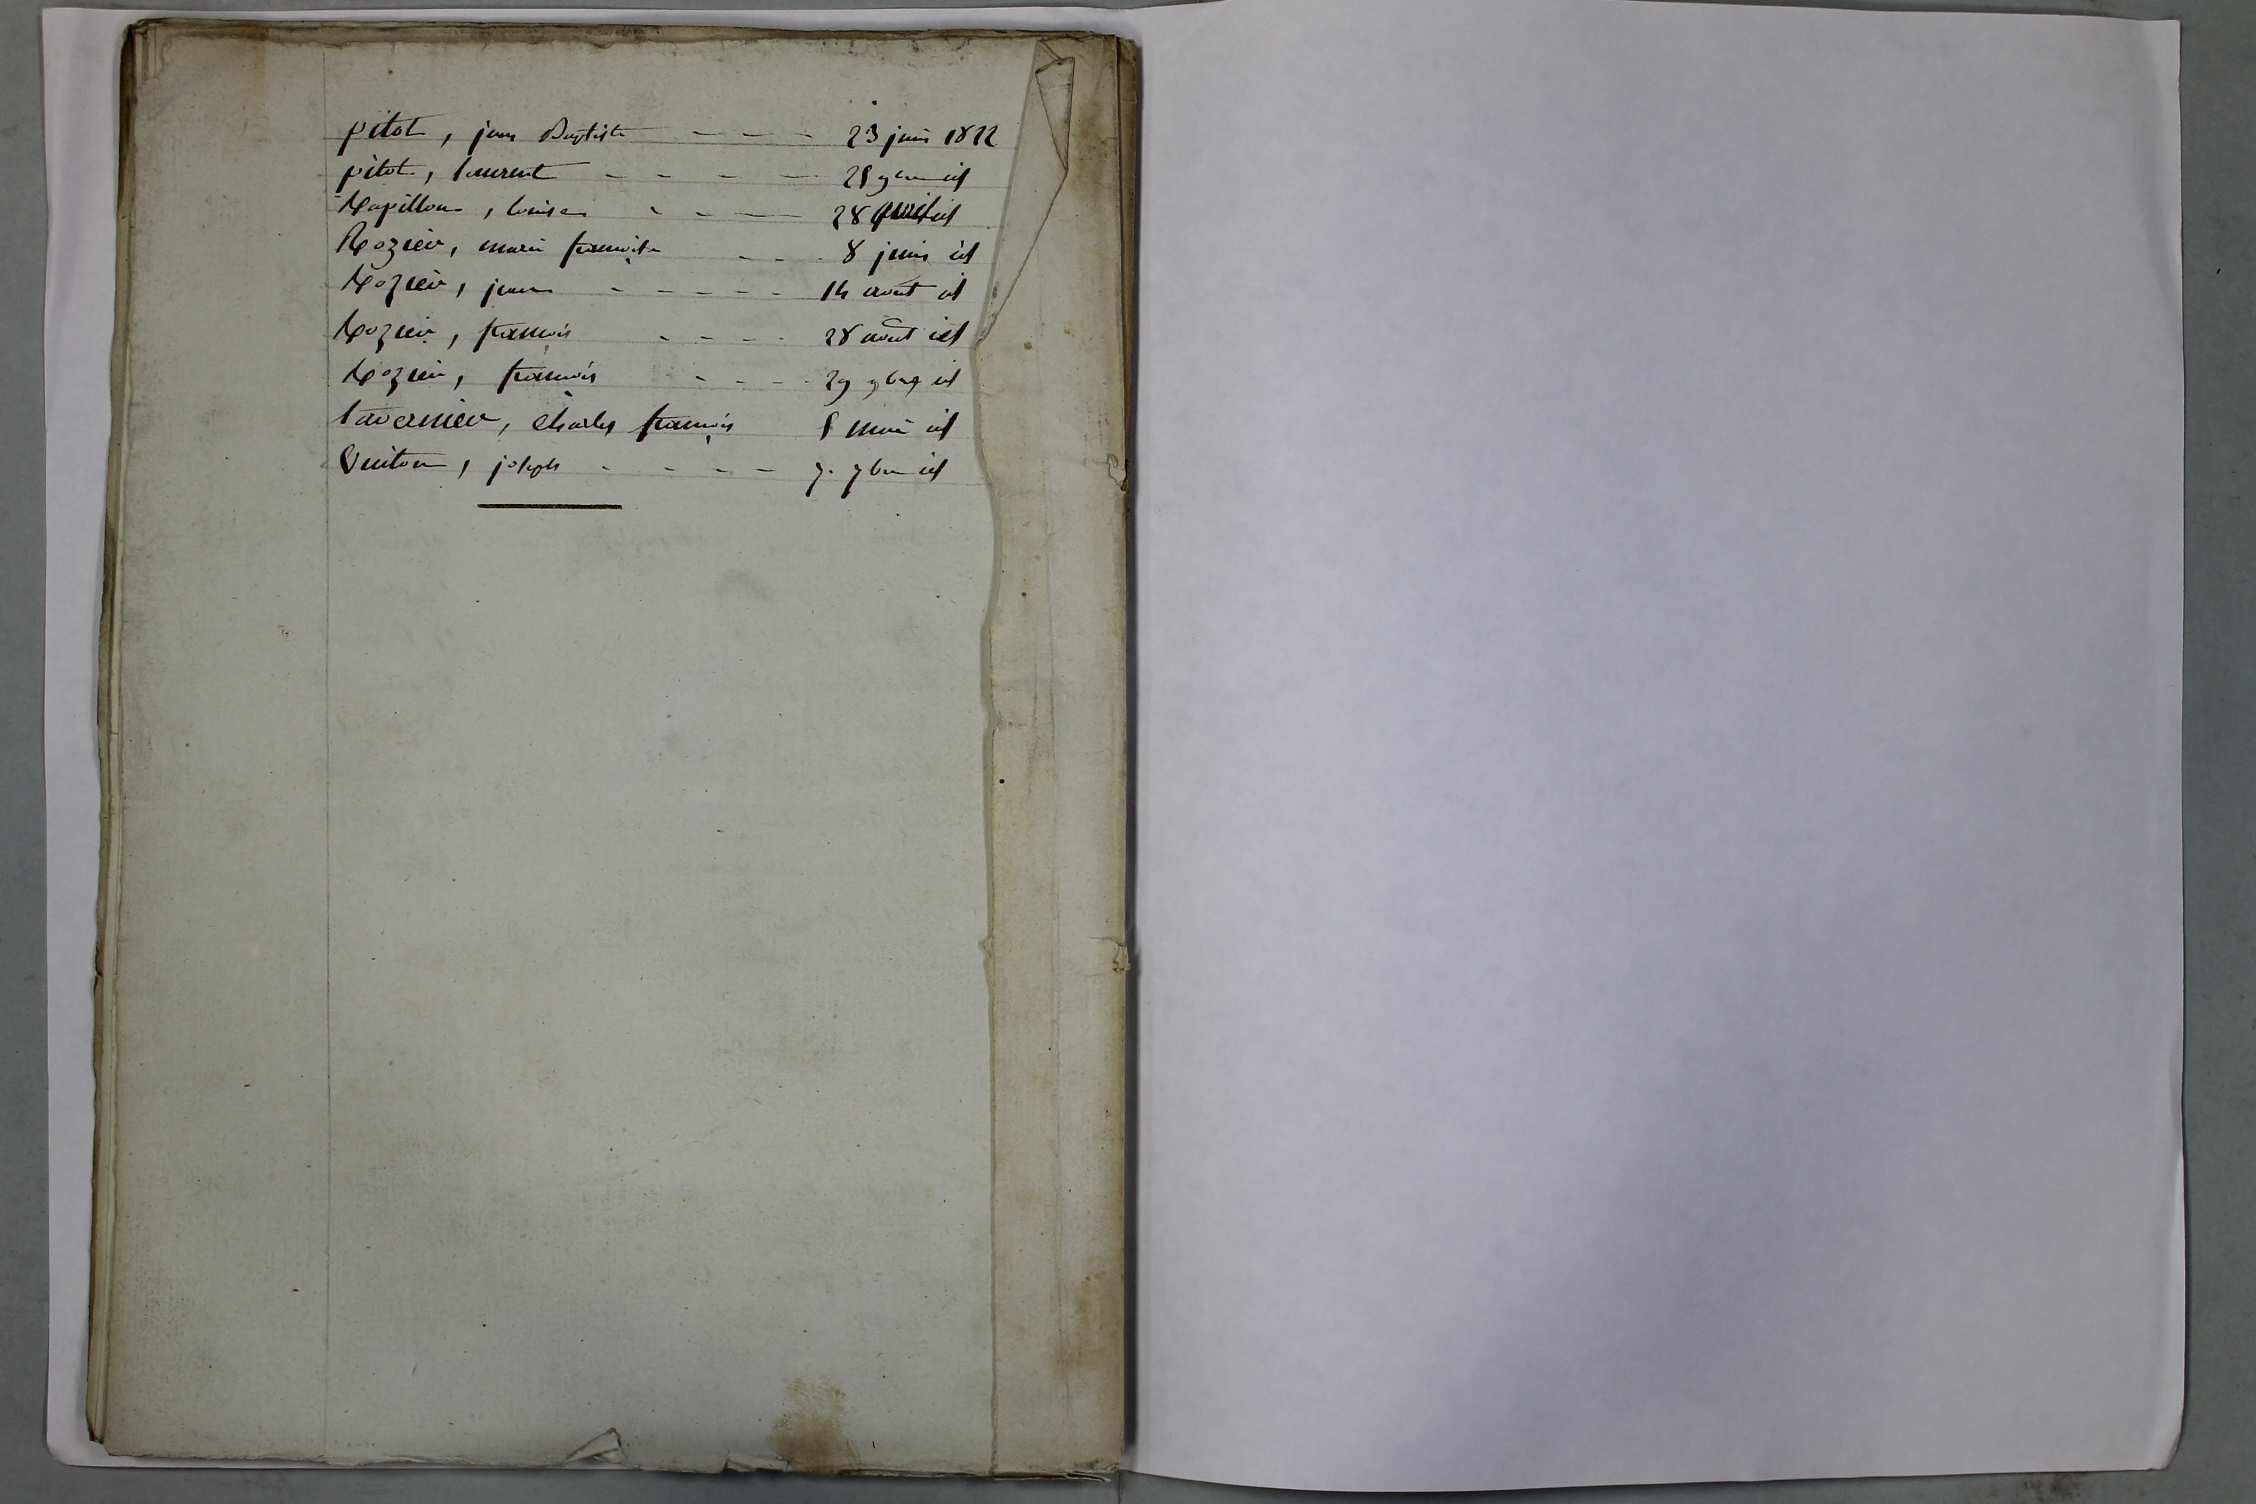 pitot, jean Baptiste - - - 23 juin 1822
pitot, laurent - - - - - 25 9bre id
Rapillon, louise - - - - 28 id
Rozier, marie françoise - - - 8 juin id
Rozier, jean - - - - - 14 août id
Rozier, françois - - - - 28 août id
Rozier, françois - - - - 29 9bre id
tavernier, charles françois 5 mai id
Vuiton, joseph - - - - - 7. 7bre id